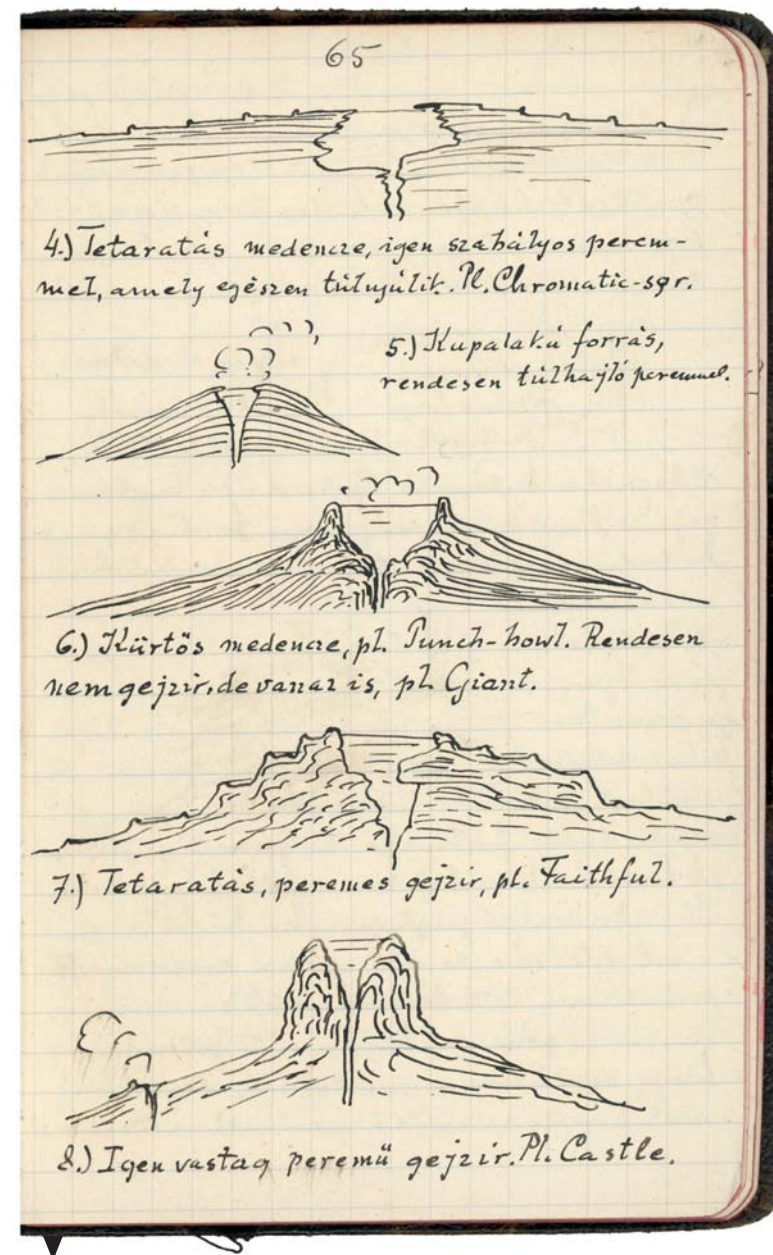 65
4.) Tetaratás medencze, igen szabályos perem-
mel, amely egészen túlnyúlik. Pl. Chromatic-spr.
5.) Kupalakú forrás,
rendesen túlhajló peremmel.
6.) Kürtős medencze, pl. Punch-bowl. Rendesen
nem gejzir, de van az is, pl. Giant.
7.) Tetaratás, peremes gejzir, pl. Faithful.
8.) Igen vastag peremü gejzir. Pl. Castle.